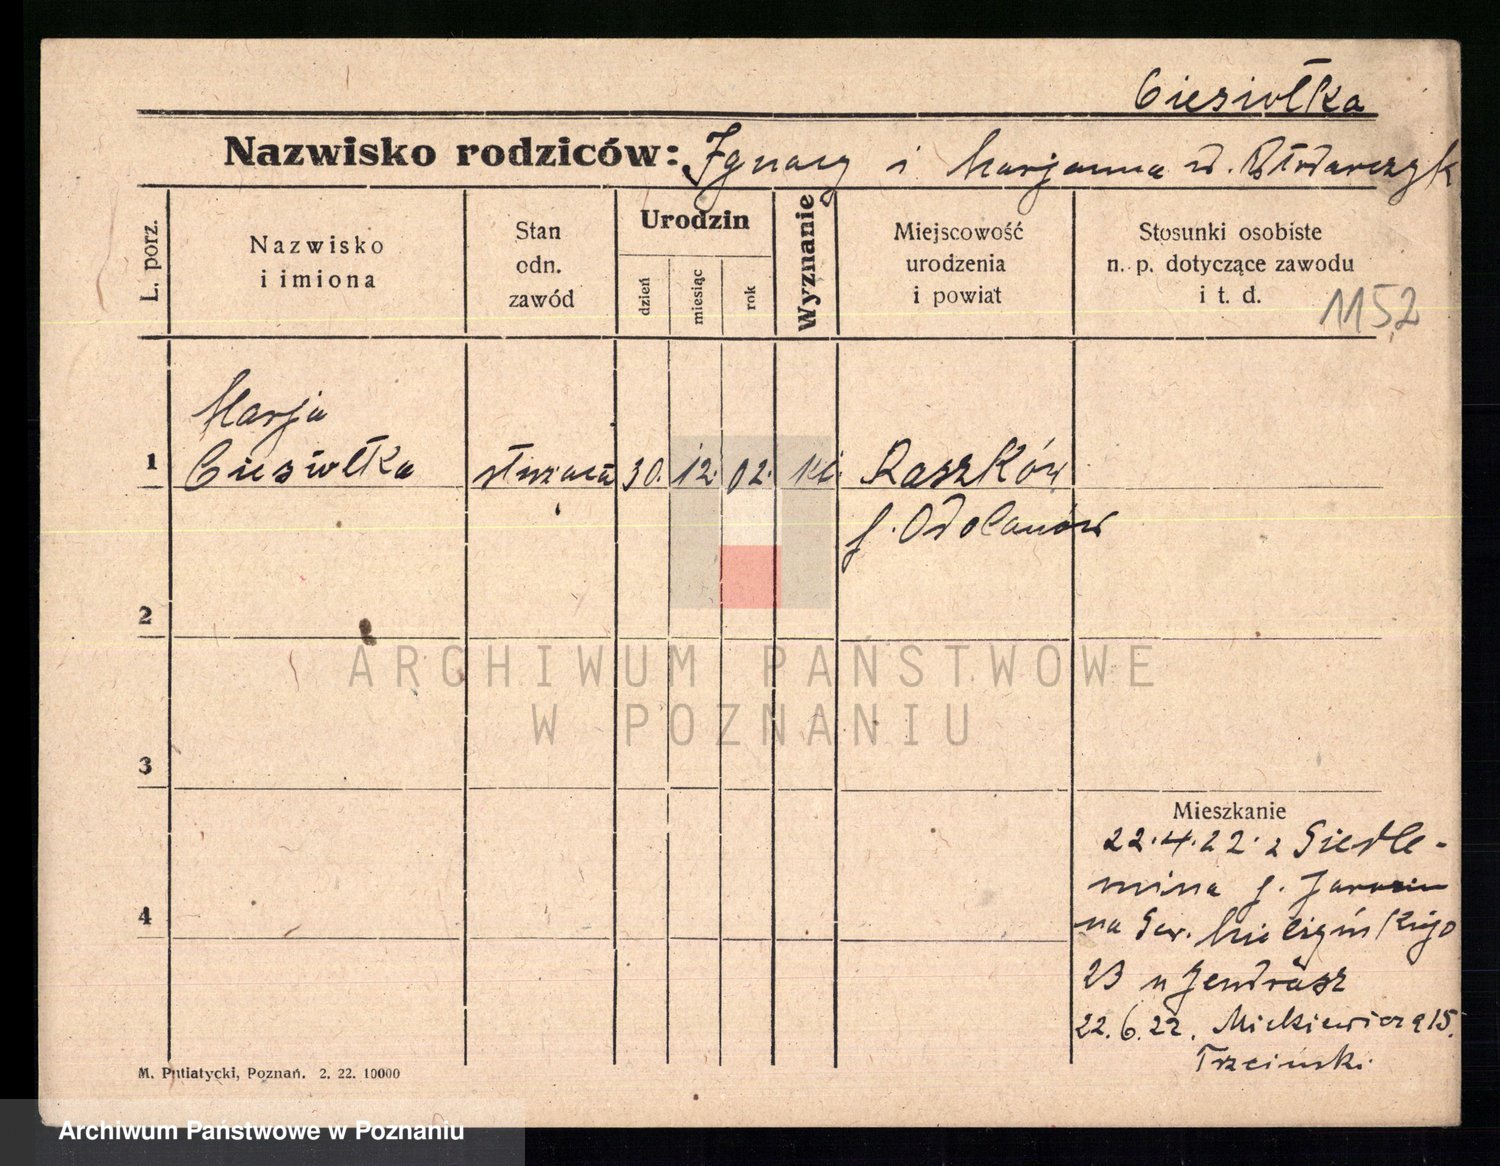 Ciesiołka
Nazwisko rodziców: Ignacy i Marjanna d. Włodarczyk
L. porz.
Nazwisko
i imiona
Stan
odn.
zawód
Urodzin
dzień
miesiąc
rok
Wyznanie
Miejscowość
urodzenia
i powiat
Stosunki osobiste
n. p. dotyczące zawodu
i t. d.
1152
Marja
1 Ciesiołka służąca 30. 12. 02. kt. Raszków
p. Odolanów
2
ARCHIWUM PAŃSTWOWE
W POZNANIU
3
Mieszkanie
22.4.22. z Siedle-
mina p. Jarocin
4
na Sew. Mielżyńskiego
23 u Jendrasz
22.6.22. Mickiewicza 15.
Trzciński.
M. Putiatycki, Poznań. 2. 22. 10000
Archiwum Państwowe w Poznaniu